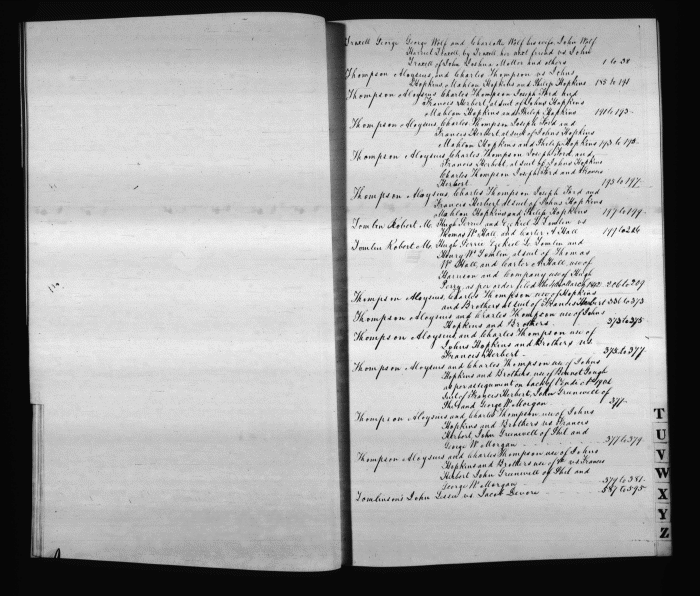 Troxell George George Wolf and Charlotte Wolf his wife, John Wolf
Harriet Troxell, by Troxell her next friend vs John
Troxell of John Joshua Motter and others 1 to 38
Thompson Aloysius, and Charles Thompson vs Johns
Hopkins Mahlon Hopkins and Philip Hopkins 188 to 191
Thompson Aloysius, Charles Thompson Joseph Ford and
Francis Herbert, at suit of Johns Hopkins
Mahlon Hopkins and Philip Hopkins 191 to 193
Thompson Aloysius, Charles Thompson Joseph Ford and
Francis Herbert at suit of Johns Hopkins
Mahlon Hopkins and Philip Hopkins 193 to 195
Thompson Aloysius, Charles Thompson Joseph Ford, and
Francis Herbert, at suit of Johns Hopkins
Charles Thompson Joseph Ford and Francis
Herbert 195 to 197
Thompson Aloysius, Charles Thompson Joseph Ford and
Francis Herbert at suit of Johns Hopkins
Mahlon Hopkins and Philip Hopkins 197 to 199
Tomlin Robert M. Hugh Perrie and Ezekiel L. Tomlin vs
Thomas W. Hall, and Carter A Hall 199 to 206
Tomlin Robert M. Hugh Perrie Ezekiel L. Tomlin and
Henry W. Tomlin, at suit of Thomas
W. Hall, and Carter A. Hall, use of
Harrison and Company use of Hugh
Perry, as per order filed the March 1842 206 to 209
Thompson Aloysius, Charles Thompson use of Hopkins
and Brothers at suit of Francis Herbert 336 to 373
Thompson Aloysius and Charles Thompson use of Johns
Hopkins and Brothers. 373 to 375
Thompson Aloysius, and Charles Thompson use of
Johns Hopkins and Brothers vs
Francis Herbert 375 to 377
Thompson Aloysius and Charles Thompson use of Johns
Hopkins and Brothers, use of Gough
as per assignment on back of
suit of Francis Herbert, John Greenwell of
Phil and George W. Morgan 377
Thompson Aloysius and Charles Thompson, use of Johns
Hopkins and Brothers vs Francis
Herbert John Greenwell of Phil and
George W. Morgan 377 to 379
Thompson Aloysius and Charles Thompson use of Johns
Hopkins and Brothers use of vs Francis
Herbert John Greenwell of Phil and
George W. Morgan 379 to 381
Tomlinson's John Lessee vs. Jacob Devore 587 to 595
T
U
V
W
X
Y
Z